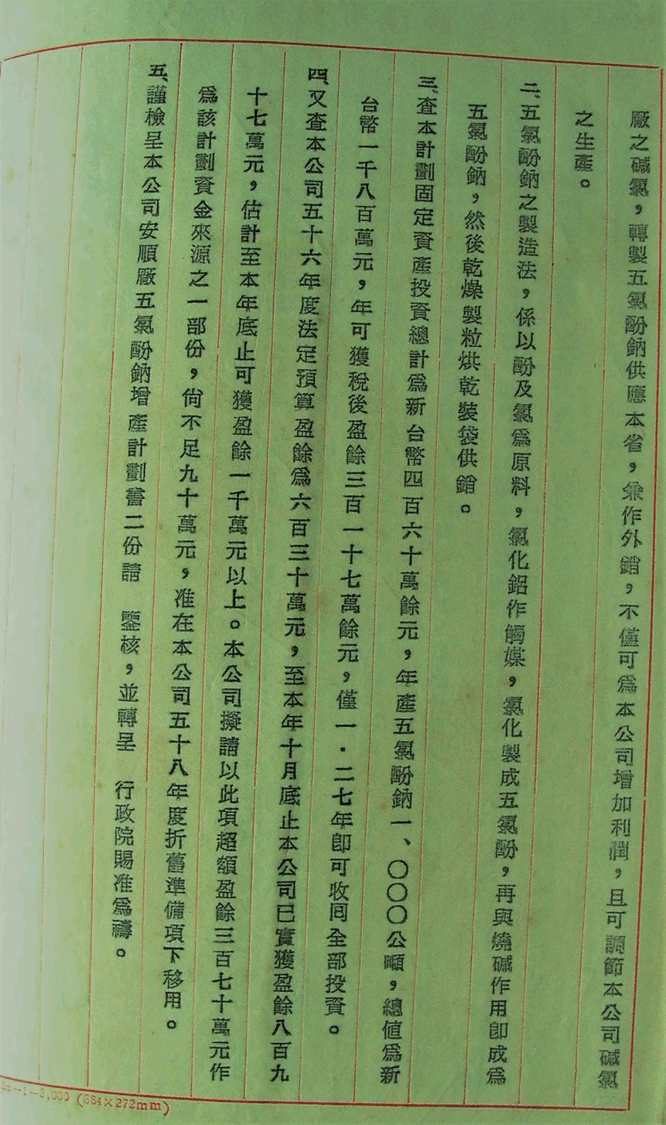 廠之碱氯，轉製五氯酚鈉供應本省，兼作外銷，不僅可為本公司增加利潤，且可調節本公司碱氯
之生產。
二、五氯酚鈉之製造法，係以酚及氯為原料，氯化鋁作觸媒，氯化製成五氯酚，再與燒碱作用即成為
五氯酚鈉，然後乾燥製粒烘乾裝袋供銷。
三、查本計劃固定資產投資總計為新台幣四百六十萬餘元，年產五氯酚鈉一、〇〇〇公噸，總值為新
台幣一千八百萬元，年可獲稅後盈餘三百一十七萬餘元，僅一．二七年卽可收囘全部投資。
四、又查本公司五十六年度法定預算盈餘為六百三十萬元，至本年十月底止本公司已實獲盈餘八百九
十七萬元，估計至本年底止可獲盈餘一千萬元以上。本公司擬請以此項超額盈餘三百七十萬元作
為該計劃資金來源之一部份，尙不足九十萬元，准在本公司五十八年度折舊準備項下移用。
五、謹檢呈本公司安順廠五氯酚鈉增產計劃書二份請　鑒核，並轉呈　行政院賜准為禱。
-1-3,000 (384×272mm)